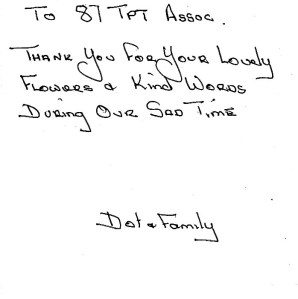 To 87 TPT Assoc.
Thank You For Your Lovely
Flowers & Kind Words
During Our Sad Time
Dot & Family